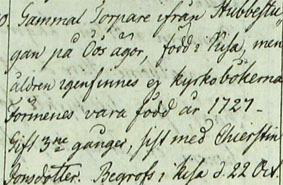 Gammal Torpare ifrån Hubbestu
gan på Öös ägor, född i Kisa, men
åldren igenfinnes ej kyrkobökerna
Förmenes vara född år 1727 -
Gift 3ne gånger, sist med Chierstin
Jonsdotter. Begrofs i Kisa d. 22 Oct.